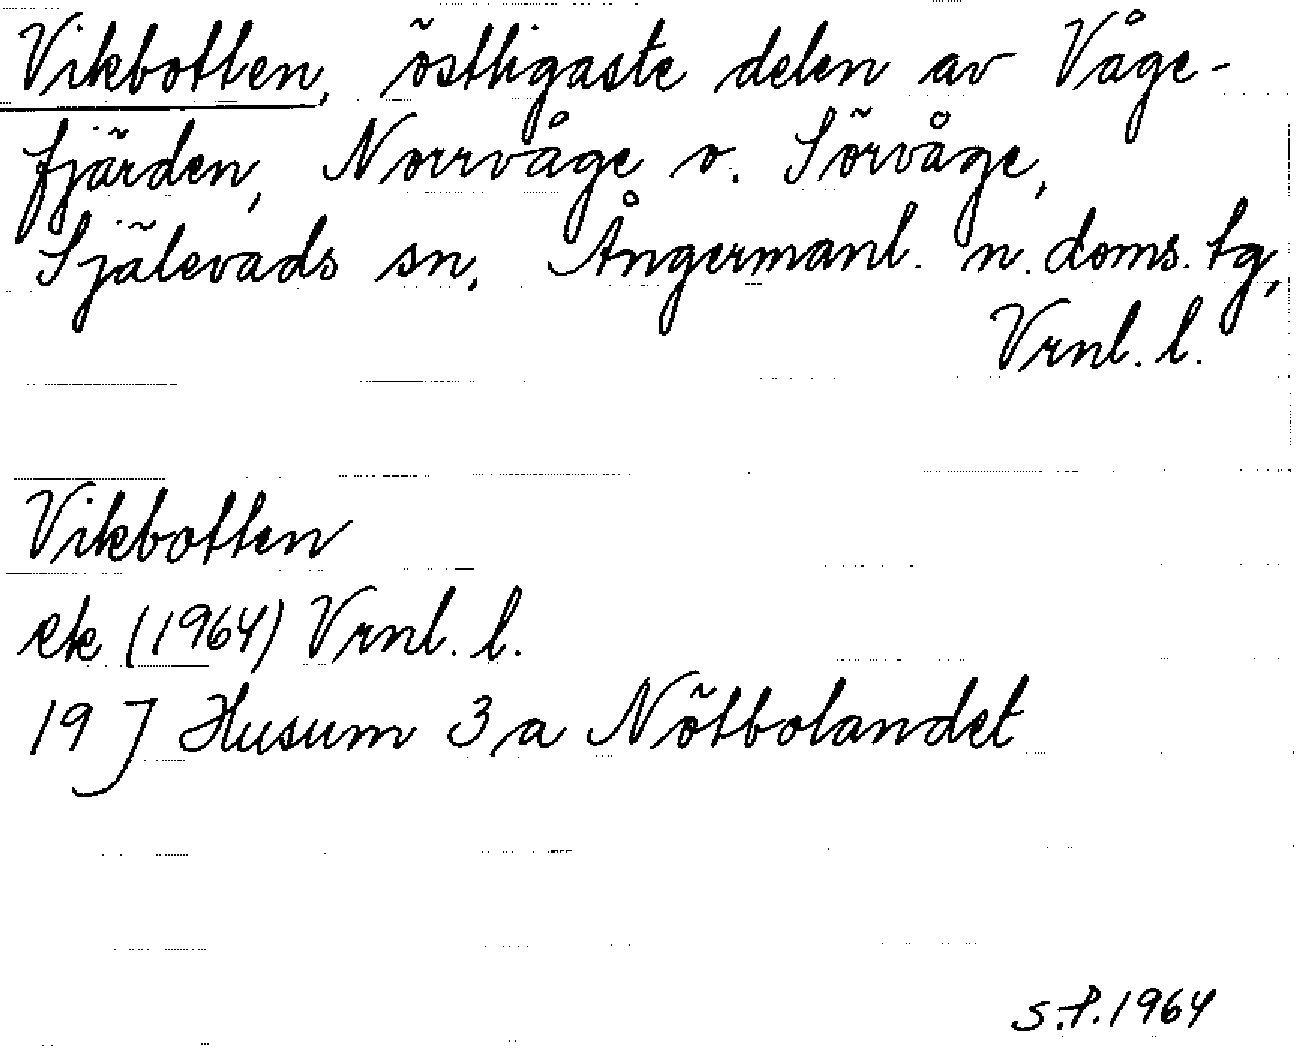 Vikbotten, östligaste delen av Våge-
fjärden, Norrvåge o. Sörvåge,
Själevads sn, Ångermanl. n. doms. tg,
Vrnl. l.
Vikbotten
ek (1964) Vrnl. l.
19 J Husum 3 a Nötbolandet
S.P. 1964